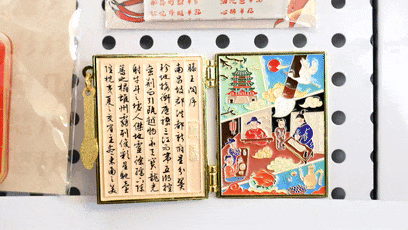 滕王阁序
南昌故郡洪都新府星分翼
轸地接衡庐襟三江而带五湖控
蛮荆而引瓯越物华天宝龙光
射牛斗之墟人杰地灵徐孺下陈
蕃之榻雄州雾列俊彩星驰台
隍枕夷夏之交宾主尽东南之美